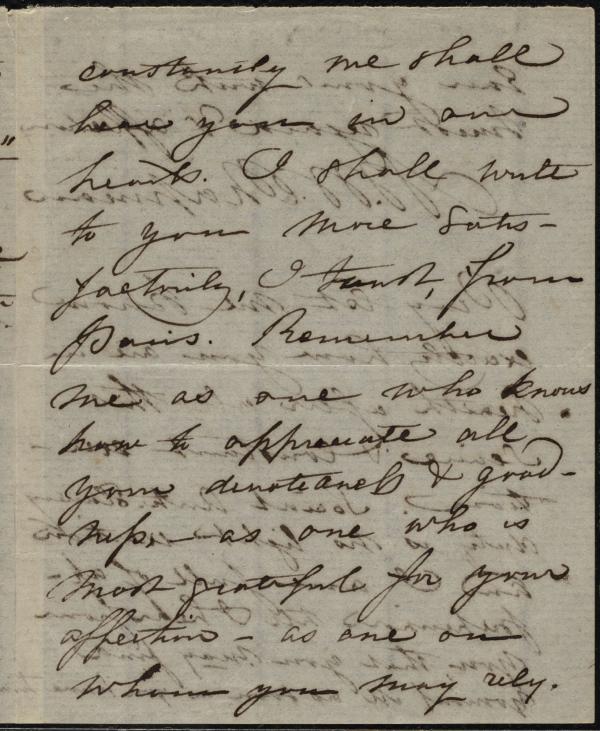 constantly we shall
bear you in our
hearts. I shall write
to you more satis-
factorily, I trust, from
Paris. Remember
me as one who knows
how to appreciate all
your devotedness & good-
ness, – as one who is
most grateful for your
affection – as one on
whom you may rely.